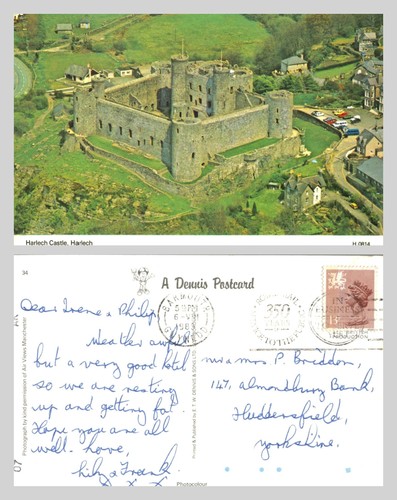 Harlech Castle, Harlech
H.0814
34
A Dennis Postcard
Dear Irene & Philip,
Weather awful
but a very good hotel
so we are resting
up and getting fat.
Hope you are all
well. Love,
Lily & Frank.
x x
Photograph by kind permission of Air Views Manchester
Printed & Published by E. T. W. DENNIS & SONS LTD
Photocolour
13
Mr & Mrs P. Briddon,
147, Almondbury Bank,
Huddersfield,
Yorkshire.